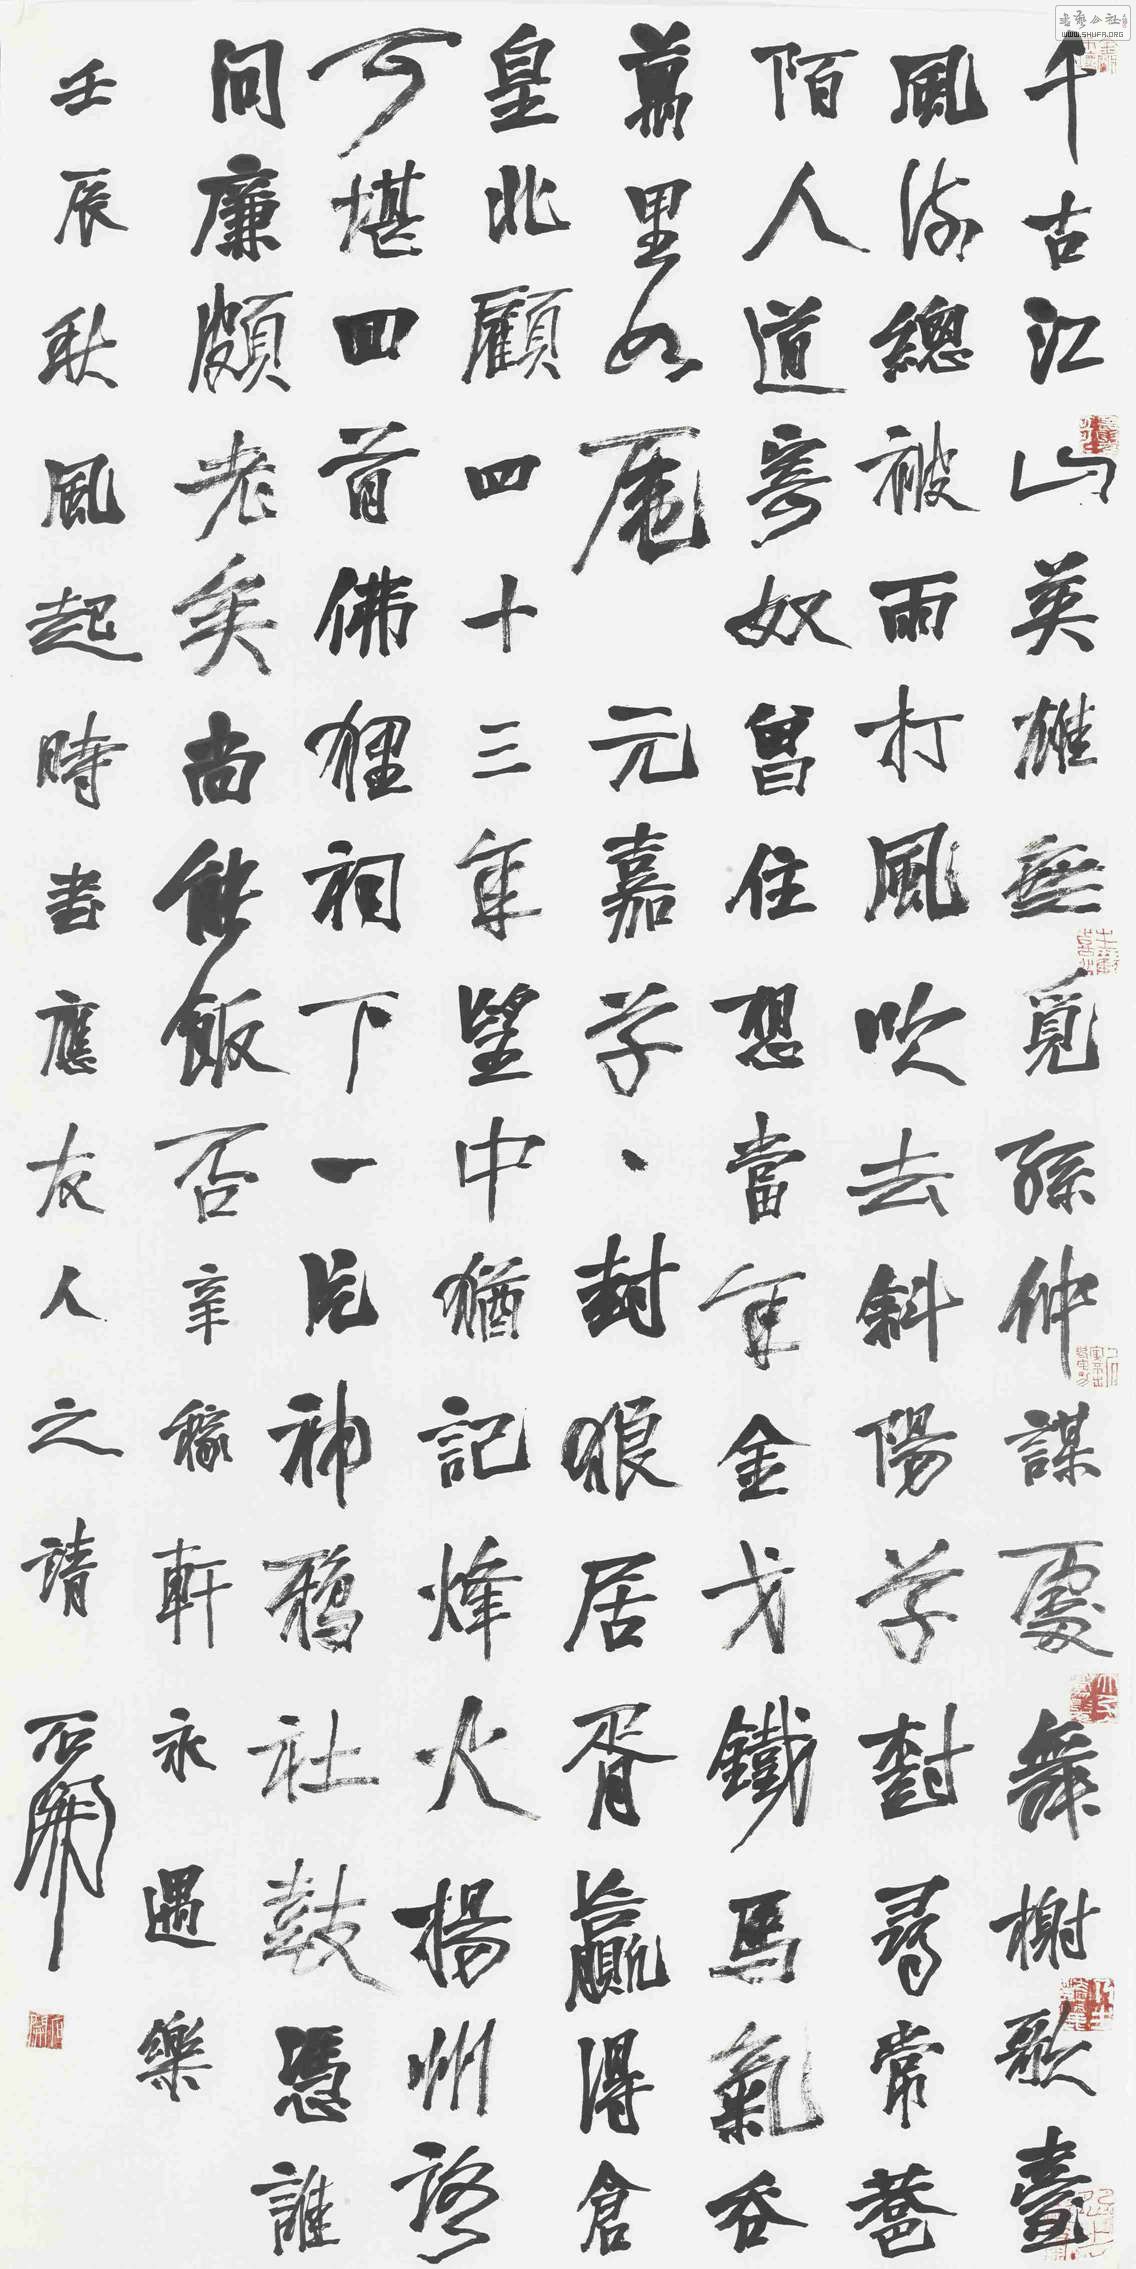 千古江山英雄無覓孫仲謀處舞榭歌臺
風流總被雨打風吹去斜陽草樹尋常巷
陌人道寄奴曾住想當年金戈鐵馬氣吞
萬里如虎 元嘉草、封狼居胥贏得倉
皇北顧四十三年望中猶記烽火揚州路
可堪回首佛狸祠下一片神鴉社鼓憑誰
問廉頗老矣尚能飯否 辛稼軒永遇樂
壬辰秋風起時書應友人之請 石開
书艺公社
WWW.SHUFA.ORG